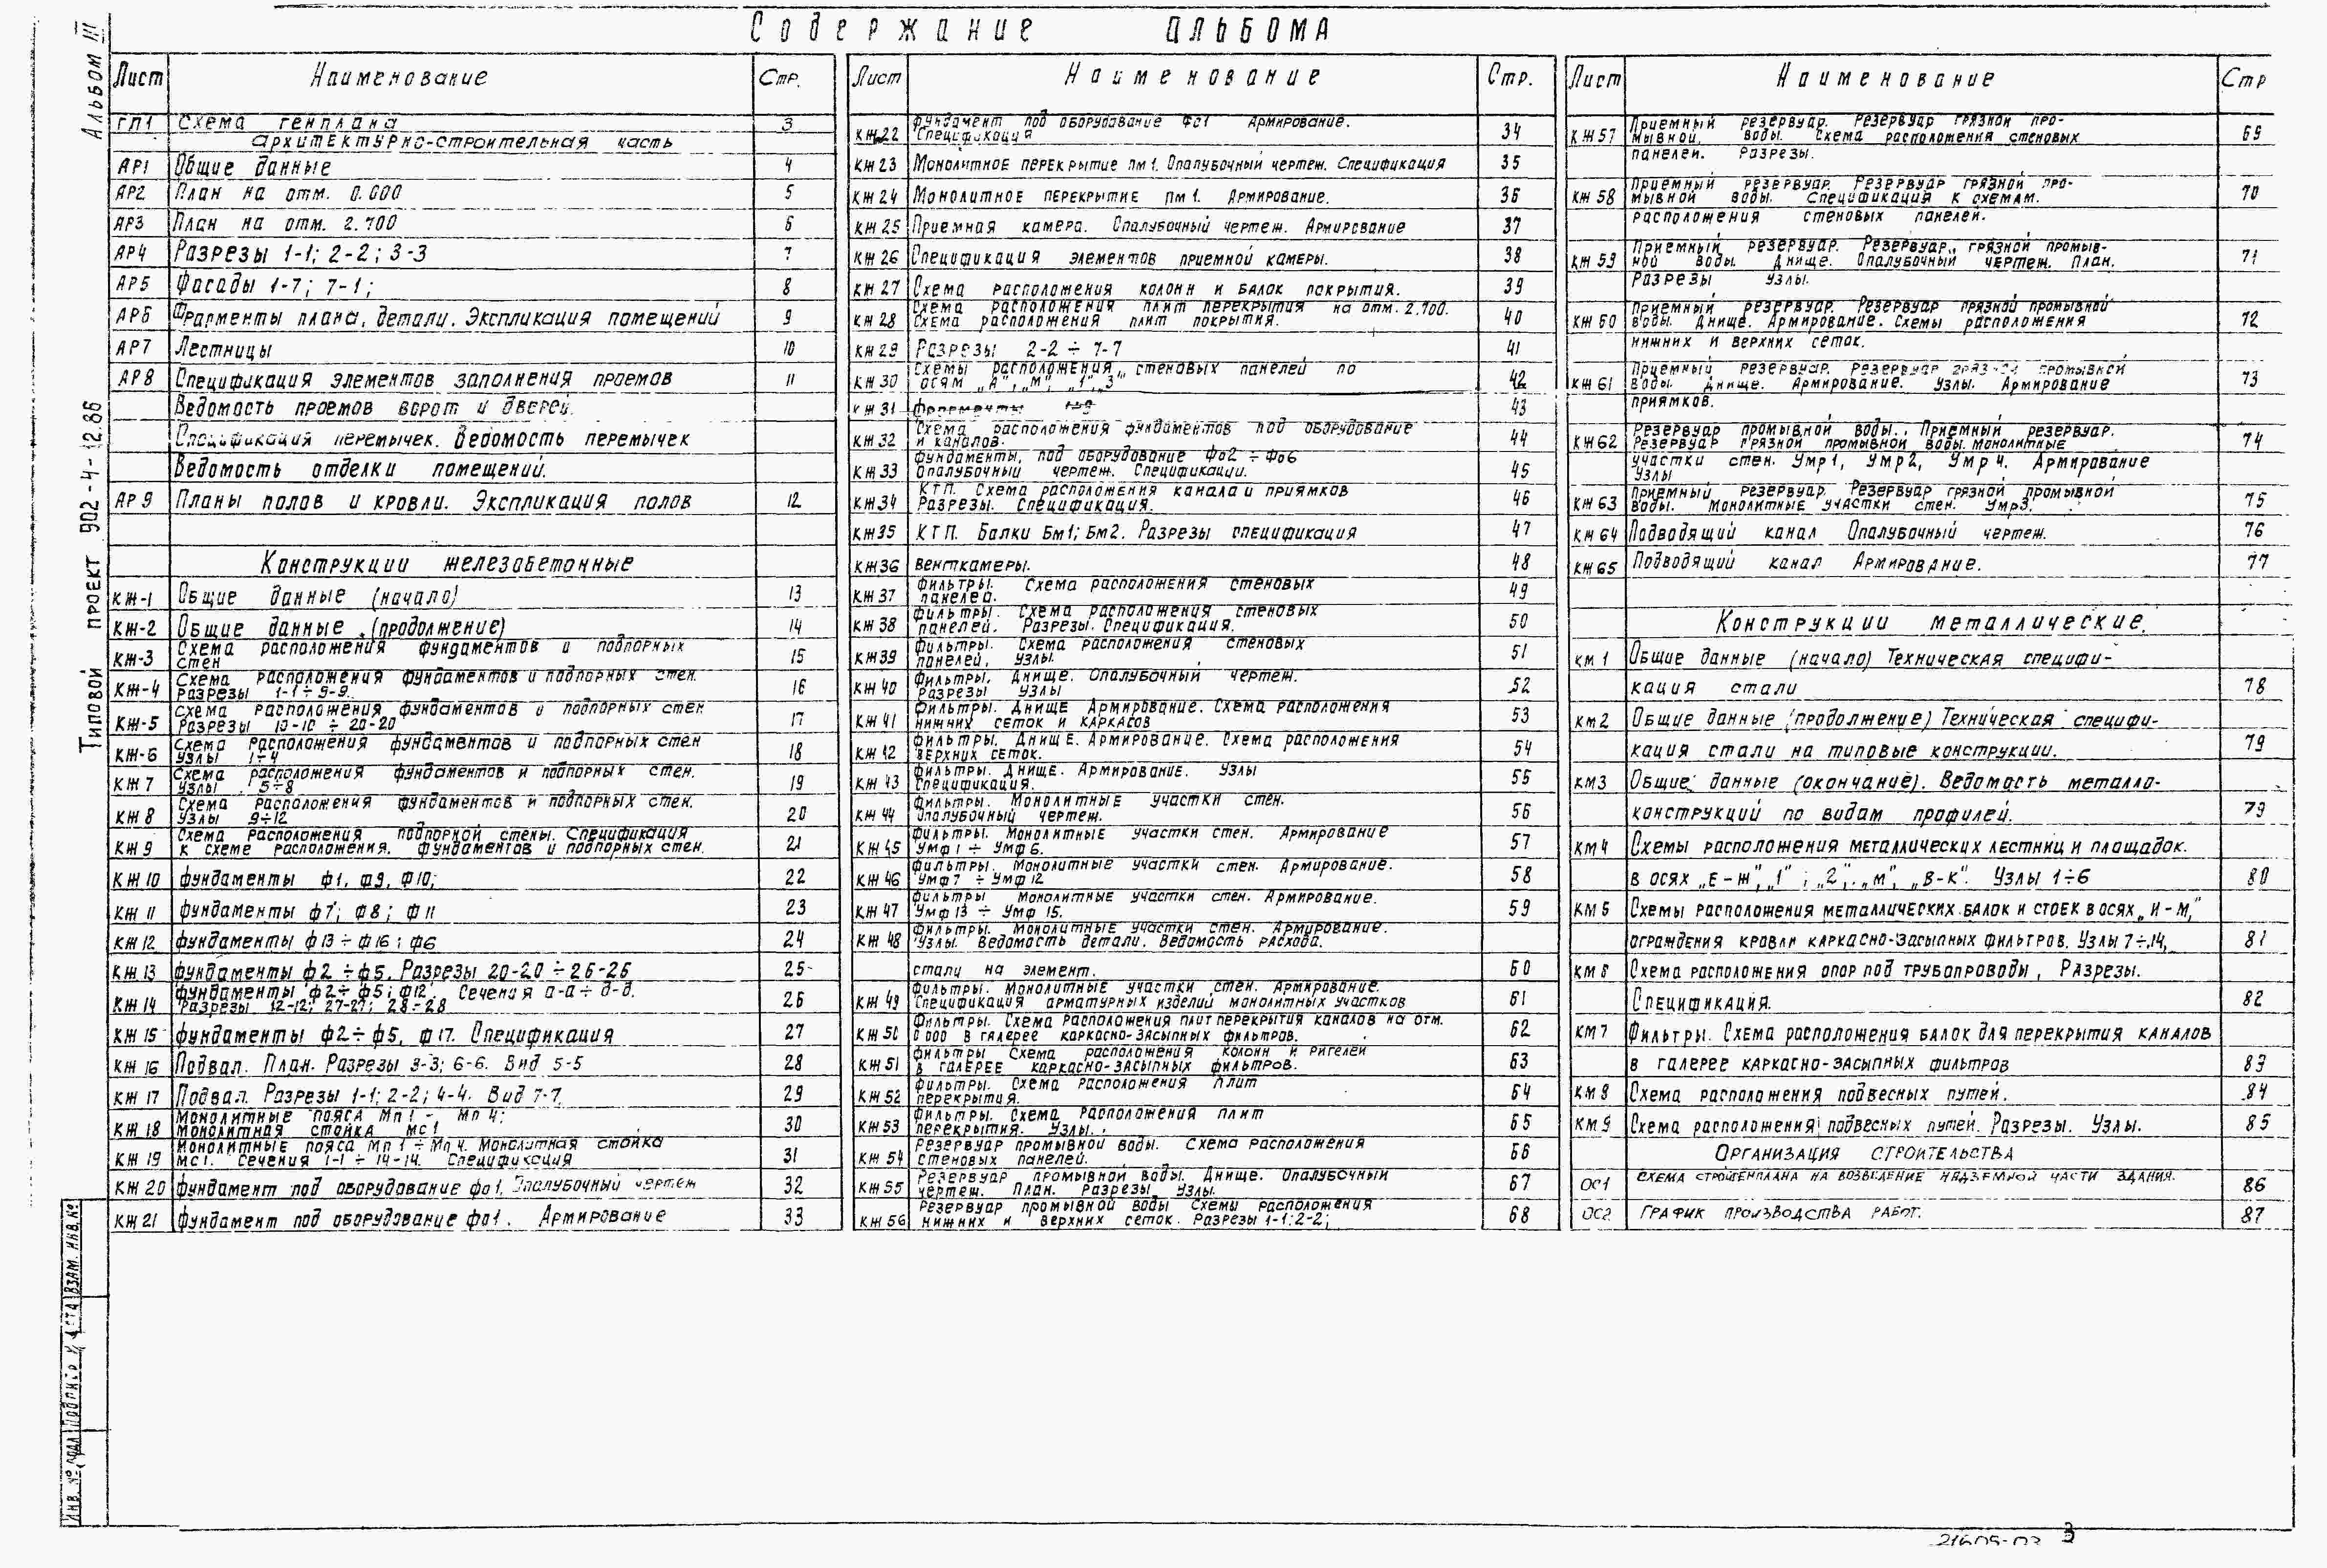 Содержание альбома
Альбом III
Типовой проект 902-4-12.86
Лист Наименование Стр.
ГП1 Схема генплана 3
Архитектурно-строительная часть
АР1 Общие данные 4
АР2 План на отм. 0.000 5
АР3 План на отм. 2.700 6
АР4 Разрезы 1-1; 2-2; 3-3 7
АР5 Фасады 1-7; 7-1; 8
АР6 Фрагменты плана, детали. Экспликация помещений 9
АР7 Лестницы 10
АР8 Спецификация элементов заполнения проемов 11
Ведомость проемов ворот и дверей.
Спецификация перемычек. Ведомость перемычек
Ведомость отделки помещений.
АР9 Планы полов и кровли. Экспликация полов 12
Конструкции железобетонные
КЖ-1 Общие данные (начало) 13
КЖ-2 Общие данные (продолжение) 14
Схема расположения фундаментов и подпорных
КЖ-3 стен 15
Схема расположения фундаментов и подпорных стен.
КЖ-4 Разрезы 1-1÷9-9. 16
Схема расположения фундаментов и подпорных стен
КЖ-5 Разрезы 10-10 ÷ 20-20 17
Схема расположения фундаментов и подпорных стен
КЖ-6 Узлы 1÷4 18
Схема расположения фундаментов и подпорных стен.
КЖ 7 Узлы 5÷8 19
Схема расположения фундаментов и подпорных стен.
КЖ 8 Узлы 9÷12 20
Схема расположения подпорной стены. Спецификация
КЖ 9 к схеме расположения. фундаментов и подпорных стен. 21
КЖ 10 Фундаменты Ф1, Ф9, Ф10; 22
КЖ 11 Фундаменты Ф7; Ф8; Ф11 23
КЖ 12 Фундаменты Ф13÷Ф16; Ф6 24
КЖ 13 Фундаменты Ф2÷Ф5. Разрезы 20-20÷26-26 25
Фундаменты Ф2÷Ф5; Ф12 Сечения а-а÷д-д.
КЖ 14 Разрезы 12-12; 27-27; 28-28 26
КЖ 15 Фундаменты Ф2÷Ф5, Ф17. Спецификация 27
КЖ 16 Подвал. План. Разрезы 3-3; 6-6. Вид 5-5 28
КЖ 17 Подвал. Разрезы 1-1; 2-2; 4-4. Вид 7-7. 29
Монолитные пояса Мп1 - Мп4;
КЖ 18 Монолитная стойка Мс1 30
Монолитные пояса Мп1÷Мп4. Монолитная стойка
КЖ 19 Мс1. Сечения 1-1÷14-14. Спецификация 31
КЖ 20 Фундамент под оборудование Фо1. Опалубочный чертеж 32
КЖ 21 Фундамент под оборудование Фо1. Армирование 33
Лист Наименование Стр.
Фундамент под оборудование Фо1 Армирование.
КЖ 22 Спецификация 34
КЖ 23 Монолитное перекрытие Пм1. Опалубочный чертеж. Спецификация 35
КЖ 24 Монолитное перекрытие Пм1. Армирование. 36
КЖ 25 Приемная камера. Опалубочный чертеж. Армирование 37
КЖ 26 Спецификация элементов приемной камеры. 38
КЖ 27 Схема расположения колонн и балок покрытия. 39
Схема расположения плит перекрытия на отм. 2.700.
КЖ 28 Схема расположения плит покрытия. 40
КЖ 29 Разрезы 2-2 ÷ 7-7 41
Схемы расположения стеновых панелей по
КЖ 30 осям „А", „М", „1", „3" 42
КЖ 31 Фрагменты 1÷9 43
Схема расположения фундаментов под оборудование
КЖ 32 и каналов. 44
Фундаменты, под оборудование Фо2 ÷ Фо6
КЖ 33 Опалубочный чертеж. Спецификации. 45
КТП. Схема расположения канала и приямков
КЖ 34 Разрезы. Спецификация. 46
КЖ 35 КТП. Балки Бм1; Бм2. Разрезы спецификация 47
КЖ 36 Венткамеры. 48
Фильтры. Схема расположения стеновых
КЖ 37 панелей. 49
Фильтры. Схема расположения стеновых
КЖ 38 панелей. Разрезы. Спецификация. 50
Фильтры. Схема расположения стеновых
КЖ 39 панелей. Узлы. 51
Фильтры. Днище. Опалубочный чертеж.
КЖ 40 Разрезы Узлы 52
Фильтры. Днище Армирование. Схема расположения
КЖ 41 нижних сеток и каркасов 53
Фильтры. Днище. Армирование. Схема расположения
КЖ 42 верхних сеток. 54
Фильтры. Днище. Армирование. Узлы
КЖ 43 Спецификация. 55
Фильтры. Монолитные участки стен.
КЖ 44 Опалубочный чертеж. 56
Фильтры. Монолитные участки стен. Армирование
КЖ 45 Умф1 ÷ Умф6. 57
Фильтры. Монолитные участки стен. Армирование.
КЖ 46 Умф7 ÷ Умф12 58
Фильтры Монолитные участки стен. Армирование.
КЖ 47 Умф13 ÷ Умф15. 59
Фильтры. Монолитные участки стен. Армирование.
КЖ 48 Узлы. Ведомость детали. Ведомость расхода.
стали на элемент. 60
Фильтры. Монолитные участки стен. Армирование.
КЖ 49 Спецификация арматурных изделий монолитных участков 61
Фильтры. Схема расположения плит перекрытия каналов на отм.
КЖ 50 0 000 в галерее каркасно-засыпных фильтров. 62
Фильтры Схема расположения колонн и ригелей
КЖ 51 в галерее каркасно-засыпных фильтров. 63
Фильтры. Схема расположения плит
КЖ 52 перекрытия. 64
Фильтры. Схема расположения плит
КЖ 53 перекрытия. Узлы. 65
Резервуар промывной воды. Схема расположения
КЖ 54 стеновых панелей. 66
Резервуар промывной воды. Днище. Опалубочный
КЖ 55 чертеж. План. Разрезы Узлы. 67
Резервуар промывной воды Схемы расположения
КЖ 56 нижних и верхних сеток. Разрезы 1-1; 2-2; 68
Лист Наименование Стр
Приемный резервуар. Резервуар грязной про-
КЖ 57 мывной. воды. Схема расположения стеновых 69
панелей. Разрезы.
Приемный резервуар. Резервуар грязной про-
КЖ 58 мывной воды. Спецификация к схемам. 70
расположения стеновых панелей.
Приемный резервуар. Резервуар, грязной промыв-
КЖ 59 ной воды. Днище. Опалубочный чертеж. План. 71
Разрезы Узлы.
Приемный резервуар. Резервуар грязной промывной
КЖ 60 воды. Днище. Армирование. Схемы расположения 72
нижних и верхних сеток.
Приемный резервуар. Резервуар грязной промывной
КЖ 61 воды. Днище. Армирование. Узлы. Армирование 73
приямков.
Резервуар промывной воды. Приемный резервуар.
КЖ 62 Резервуар грязной промывной воды. Монолитные 74
участки стен. Умр1, Умр2, Умр4. Армирование
Узлы
Приемный резервуар. Резервуар грязной промывной
КЖ 63 воды. Монолитные участки стен. Умр3. 75
КЖ 64 Подводящий канал Опалубочный чертеж. 76
КЖ 65 Подводящий канал Армирование. 77
Конструкции металлические.
КМ 1 Общие данные (начало) Техническая специфи-
кация стали 78
КМ2 Общие данные (продолжение) Техническая специфи-
кация стали на типовые конструкции. 79
КМ3 Общие данные (окончание). Ведомость металло-
конструкций по видам профилей. 79
КМ4 Схемы расположения металлических лестниц и площадок.
в осях „Е-Ж", „1"; „2". „М", „В-К". Узлы 1÷6 80
КМ5 Схемы расположения металлических балок и стоек в осях „И-М,"
ограждения кровли каркасно-засыпных фильтров. Узлы 7÷14, 81
КМ6 Схема расположения опор под трубопроводы, Разрезы.
Спецификация. 82
КМ7 Фильтры. Схема расположения балок для перекрытия каналов
в галерее каркасно-засыпных фильтров 83
КМ8 Схема расположения подвесных путей. 84
КМ9 Схема расположения подвесных путей. Разрезы. Узлы. 85
Организация строительства
ОС1 Схема стройгенплана на возведение надземной части здания. 86
ОС2 График производства работ. 87
Инв. № подл Подпись и дата Взам. инв. №
21605-03 3